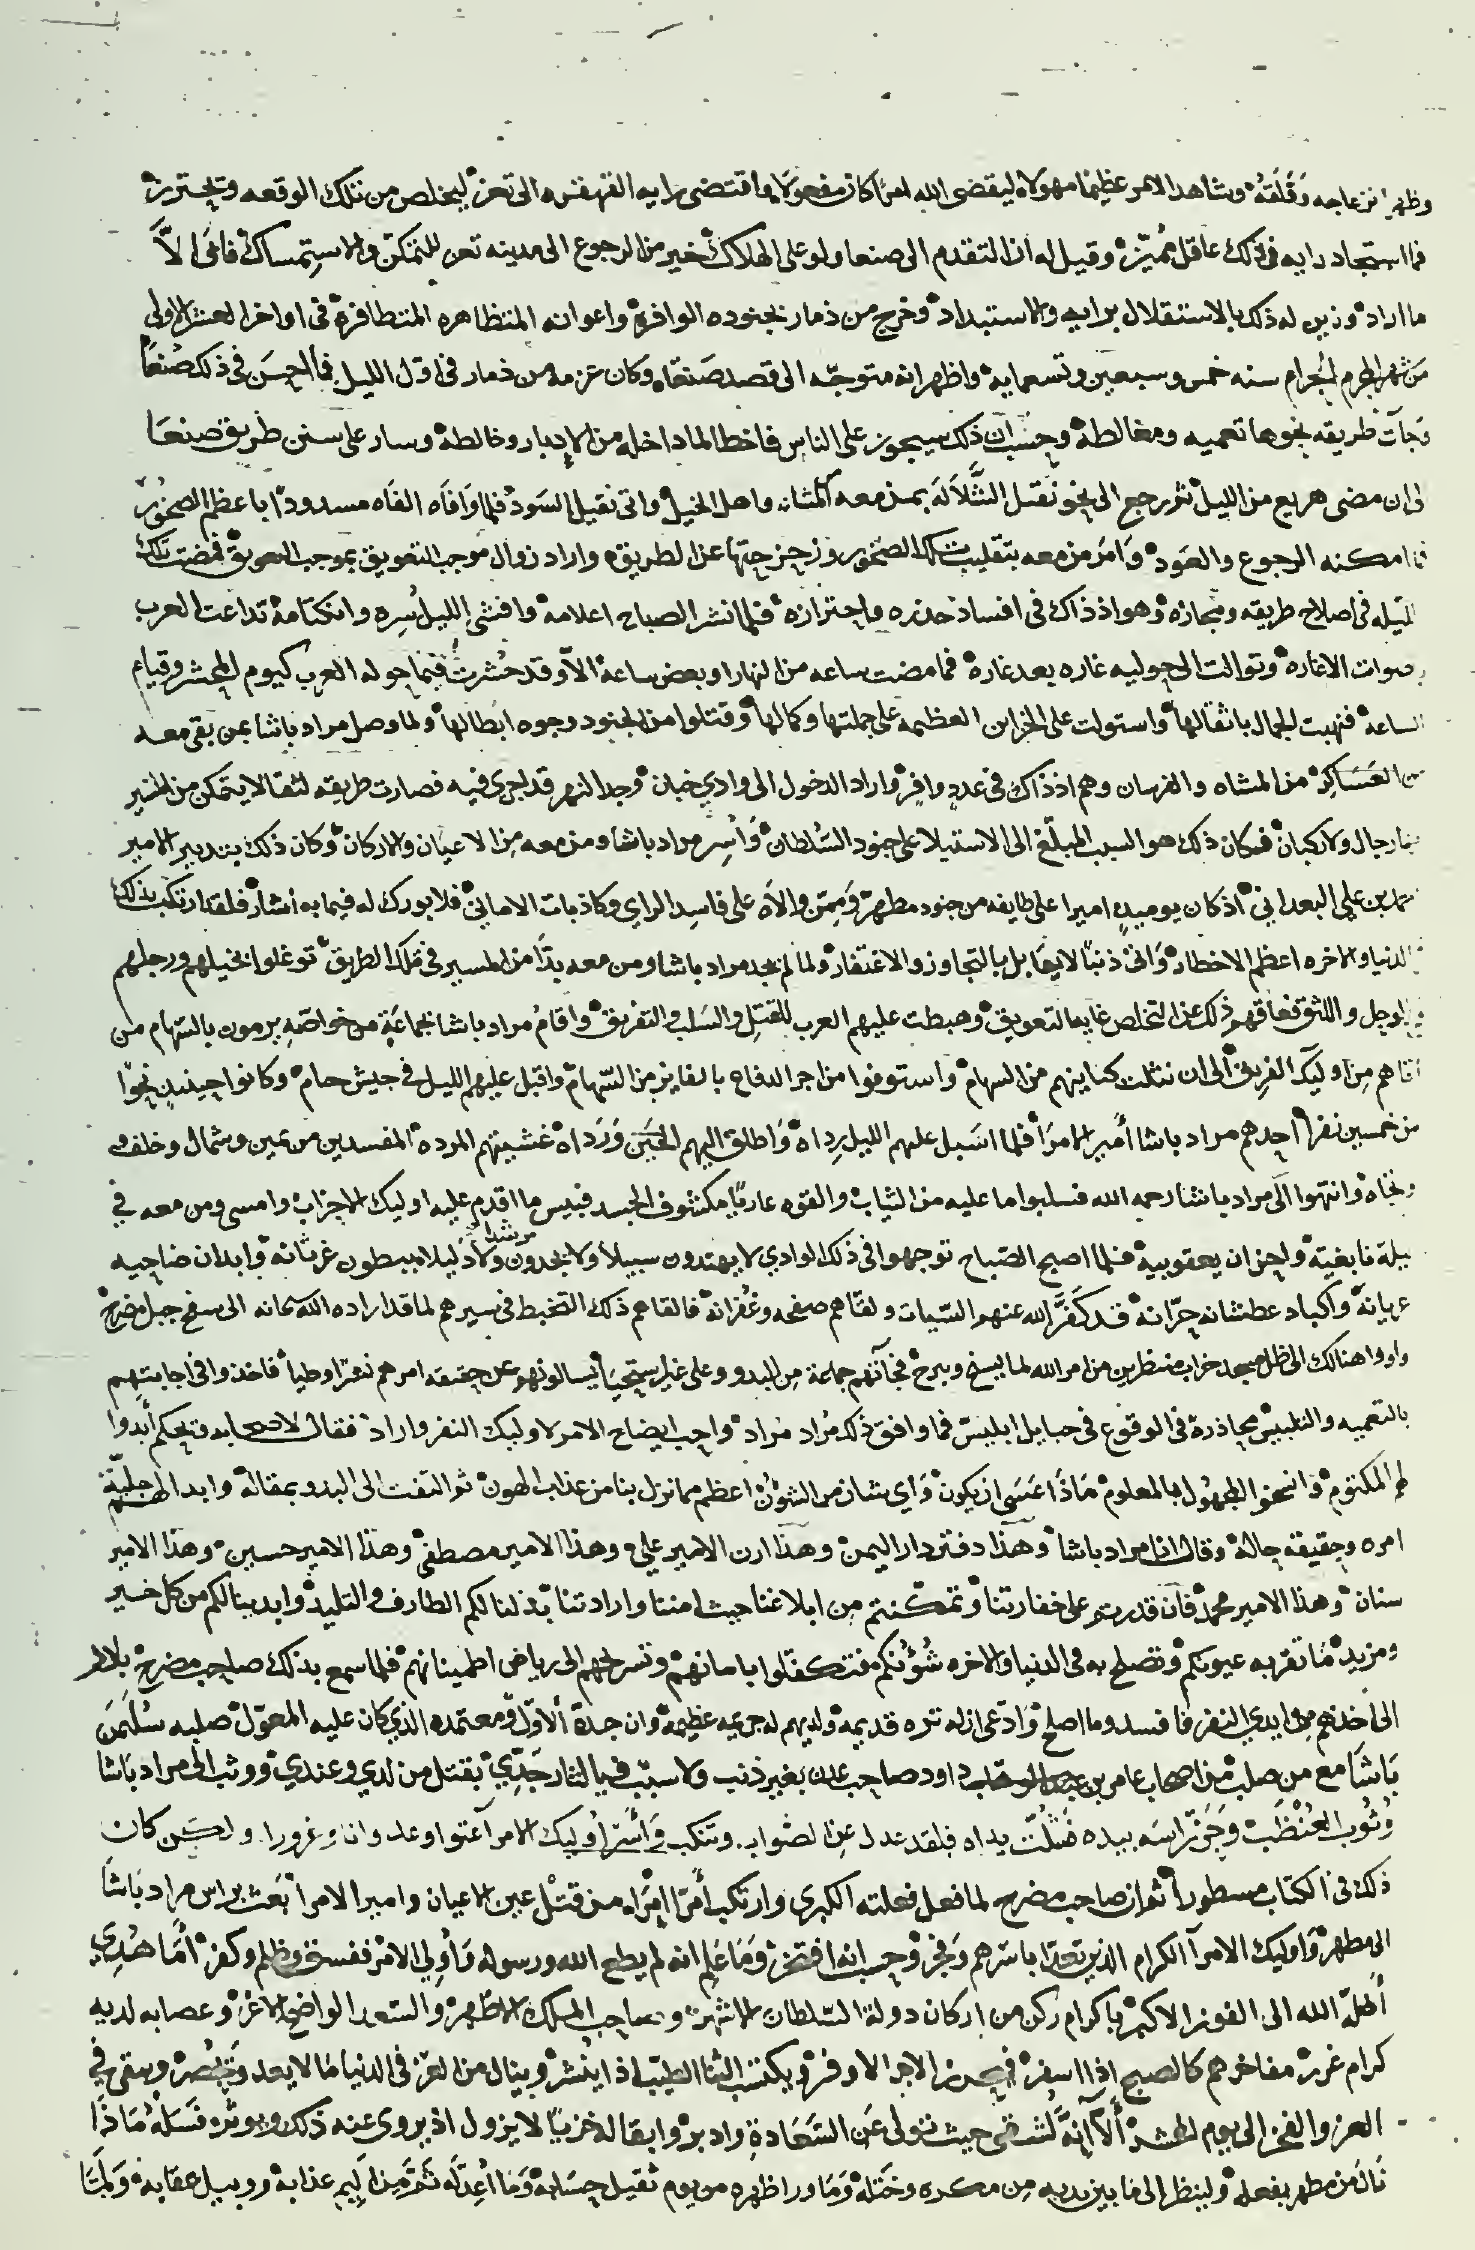 وظهر انزعاجه وقلقه وشاهد الامر عظيما مهولا ليقضى الله امرا كان مفعولا واقتضى رايه القهقره الى تعز ليخلص من تلك الوقعه ويحترز
فما استجاد رايه فى ذلك عاقل مميز وقيل له ان التقدم الى صنعا ولو على الهلاك خير من الرجوع الى مدينه تعز للتمكن والاستمساك فابى الاَّ
ما اراد وزين له ذلك بالاستقلال برايه والاستبداد وخرج من ذمار بجنوده الوافره واعوانه المتظاهره المتظافرة فى اواخر العشر الاولى
من شهر المحرم الحرام سنه خمس وسبعين وتسعمايه واظهر انه متوجّه الى قصد صنعاء وكان عزمه من ذمار فى اوّل الليل فما احسَن فى ذلك صُنعًا
وجآت طريقه نحوها تعميه ومغالطة وحسب ان ذلك سيجوز على الناس فاخطا لما داخله من الادبار وخالطه وسار على سنن طريق صنعا
الى ان مضى هزيع من الليل ثم رجع الى نحو نقيل الشَّلاَلَه بمن معه المشاه واهل الخيل واتى نقيل السَود فلما وافاه الفاه مسدودًا باعظم الصخور
فما امكنه الرجوع والعَود وامَر من معه بتقليب تلك الصخور وزحزحتها عن الطريق واراد زوال موجب التعويق بموجب العويق فمضت تلك
الليله فى اصلاح طريقه ومجازه وهو اذ ذاك فى افساد حذره واحترازه فلما نشر الصباح اعلامه وافشى الليل سره وانكتامه تداعت العرب
بصوات الاغاره وتوالت الى حواليه غاره بعد غارة فما مضت ساعه من النهار او بعض ساعة الاّ وقد حُشرت فيما حوله العرب كيوم المحشر وقيام
الساعه فنهبت الجمال باثقالها واستولت على الخزاين العظيمه على جملتها وكمالها وقتلوا من الجنود وجوه ابطالها ولما وصل مراد باشا بمن بقى معه
من العَسَاكِر من المشاه والفرسان وهم اذ ذاك فى عدد وافر واراد الدخول الى وادي خبان وجد النهر قد اجرى فيه فصارت طريقه لثقا لا يتمكن من السير
فيها رجال ولا ركبان فكان ذلك هو السبب المبلّغ الى الاستيلا على جنود السّلطان وَأُسِر مراد باشا ومن معه مِن الاعيان والاركان وكان ذلك بتدبير الامير
محمد بن علي البعداني اذ كان يوميذٍ اميرا على طايفه من جنود مطهر وَممّن والاه على فاسِد الراي وكاذبات الاماني فلا بورك له فيما به اشار فلقد ارتكب بذلك
فى الدنيا والاخره اعظم الاخطار وَاتى ذنبًا لا يقابل بالتجاوز والاغتفار ولما لم يجد مراد باشا ومن معه بدًّا من المسير فى تلك الطريق توغلوا بخيلهم ورجلهم
فى الوحل واللثق فعاقهم ذلك عن التخلص غايه التعويق وهبطت عليهم العرب للقتل والسَلب والتفريق واقام مراد باشا بجماعَةٍ من خواصّه يرمون بالسّهام من
اتاهم مِن اوليك الفريق الى ان نثلت كناينهم من السهام واستوفوا من اجر الدفاع بالفايز من السّهام واقبل عليهم الليل فى جيش حام وكانوا حينيذٍ نحوًا
من خمسين نفرا احدهم مراد باشا أمير الامرَا فلما اسَبل عليهم الليل رِداه وَاطلق اليهم الحَيَن وَرَداه غشيتهم المرده المفسدين من يمين وشمال وخلف
وتجاه وانتهوا الى مراد باشا رحمه الله فسلبوا ما عليه من الثياب والقوه عاريًا مكشوف الجسد فبيس ما اقدم عليه اوليك الاحزاب وامسى ومن معه في
ليلة نابغية واحزان يعقوبية فلما اصبح الصّباح توجهوا فى ذلك الوادي لا يهتدون سبيلا ولا يجدون مرشدا ولا دَليلا ببطون غرثانه وابدان ضاحيه
عريانة واكباد عطشانه حرّانة قد كفَّر الله عنهم السّيات ولقّاهم صفحه وغُفرانَه فالقاهم ذلك التخبط فى سيرهم لما قد اراده الله سبحانه الى سفح جبل مضرح
واووا هنالك الى ظل مسجد خراب منتظرين من امر الله لما يسنح ويبرح فجآتهم جماعة مِن البدو وعلى غير استحيا يسالونهم عن حقيقه امرهم فاخذوا فى اجابتهم
بالتعميه والتلبيس محاذرة فى الوقوع فى حبايل ابليس فما وافق ذلك مُراد مُراد واحب ايضاح الامر لاوليك النفر واراد فقال لا ويحكم أبدوا
لهم المكتوم وانحوا المجهُول بالمعلوم مَاذا عسَى ان يكون وَاي شان من الشؤن اعظم مما نزل بنا من عذاب الهون ثم التفت الى البدو بمقاله وابدا لهم جليّة
امره وحقيقه حاله وقال انا مراد باشا وهذا دفتردار اليمن وهذا ارن الامير علي وهذا الامير مصطفى وهذا الامير حسين وهذا الامير
سنان وهذا الامير محمد فان قدرتم على خفارتنا وتمكّنتم من ابلاغنا حيث امننا وارادتنا بذلنا لكم الطارف والتليد وابدينا لكم من كل خير
ومزيد مَا تقر به عيونكم وتصلح به فى الدنيا والاخره شُؤنكم فتكفلوا بامانهم وتسريحهم الى رياض اطمينانهم فلما سمع بذلك صاحب مضرح بادر
الى اخذهم من ايدي النفر فافسد وما اصلح وادّعى ان له تره قديمه ولديهم له جريمه عظيمه وان جدهَ الاوّل ومعتمده الذي كان عليه المعوّل صلبه سُليمَن
بَاشَا مع من صلب من اصحاب عامر بن داود صاحب عدن بغير ذنب ولا سبب فيالثار جَدِّي بقتل من لدي وعندي ووثب الى مراد باشا
وُثُوب وحَزَّ رَاسَه بيده فشُلّت يداه فلقد عدل عن الصّواب وتنكب وَأسَرَ أوليك الامرآ عتوا وعدوانا وغرورا ولكن كان
ذلك فى الكتاب مسطورا ثم ان صاحب مضرح لما فعل فعلته الكبرى وارتكب أمرًا امرًا من قتل عين الاعيان وامير الامرا بَعَث براس مراد باشا
الى مطهر وَاوليك الامرآ الكرام الذين تعدّا باسَرهم وَفجر وحسب انه افتخر وَمَا عَلِم انه لم يطع الله ورسوله وَأولي الامر ففسق وظلم وكفر امَّا هُدِى
أضلّه الله الى الفوز الاكبر باكرام ركن من اركان دولة السّلطان الاشهر وصاحب المسلك الاظهر والسّعد الواضح الاغر وعصابه لديه
كرام غرر مفاخرهم كالصبح اذا اسفر فيحرز الاجر الاوفر ويكتسب الثنا الطيّب اذا يُنشَر وينال من العز فى الدنيا مَا لا يعد وَيحصر ويبقى في
العز والفخر الى يوم المحشر ألاَ إنَّه لشقى حيث تولى عَن السَّعَادةِ وادبر وابقا له خزيًا لا يزول اذ يروى عنه ذلك ويوثر فسَلهُ مَاذَا
نَالَ من مطهر بفعله ولينظر الى مَا بين يديه مِن مكره وخَتله وَمَا ورا ظهره من يوم ثقيل حِسَابه وَمَا أُعِدّ لَه ثَمّ مِن أليم عذابه ووبيل عقابه وَلمَّا